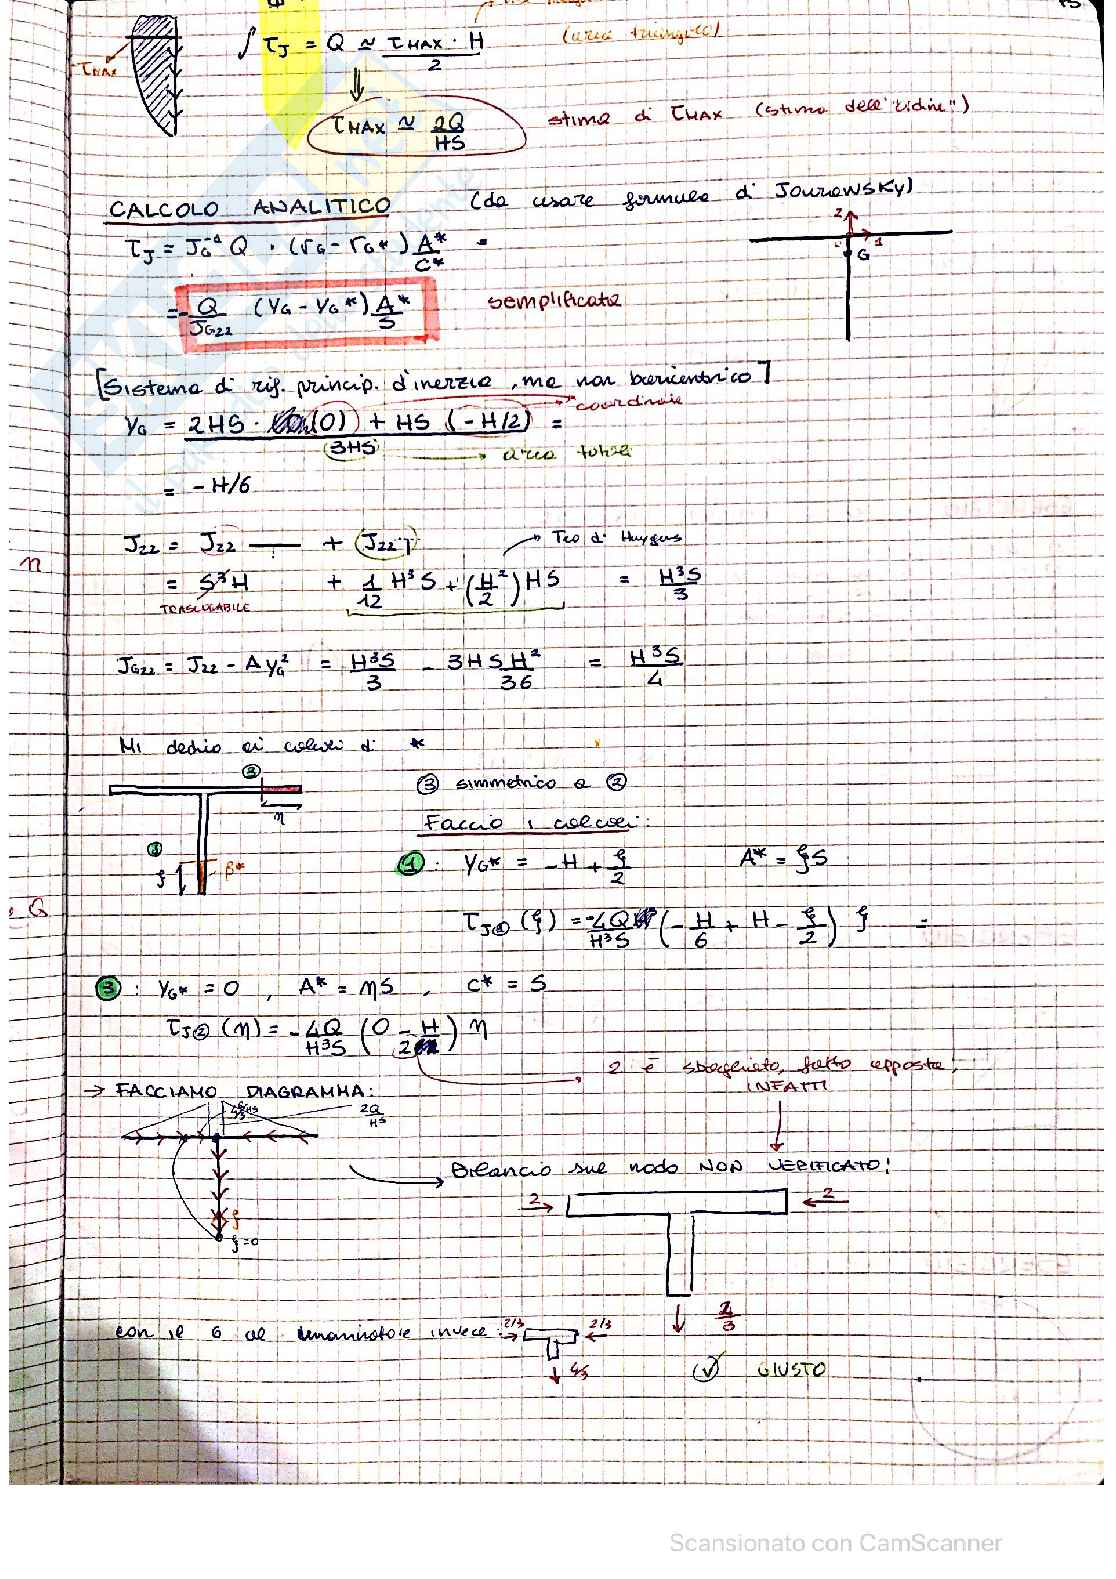 τMAX
∫ τJ = Q ≃ τMAX · H / 2
(area triangolo)
τMAX ≃ 2Q / HS
stima di τMAX (stima dell'"ridine")
CALCOLO ANALITICO (da usare formula di JOURAWSKY)
τJ = JG⁻¹ Q · (rG - rG*) A*/C* =
2
1
G
= - Q/JG22 (YG - YG*) A*/S semplificata
[Sistema di rif. princip. d'inerzia, ma non baricentrico]
coordinate
YG = 2HS · (0) + HS (-H/2) / 3HS =
area totale
= -H/6
J22 = J22 — + (J22 |) Teo di Huygens
n
= S³H + 1/12 H³S + (H²/2) HS = H³S/3
TRASCURABILE
JG22 = J22 - AYG² = H³S/3 - 3HS H²/36 = H³S/4
Mi dedico ai calcoli di *
③ ③ simmetrico a ②
η
Faccio i calcoli:
①
ξ β*
①: YG* = -H + ξ/2 A* = ξS
Q
τJ① (ξ) = -4Q/H³S (-H/6 + H - ξ/2) ξ =
③: YG* = 0, A* = ηS, C* = S
τJ② (η) = -4Q/H³S (0 - H/2) η
2 è sbagliato, fatto apposta!
INFATTI
→ FACCIAMO DIAGRAMMA:
2Q/HS
Bilancio sul nodo NON VERIFICATO!
2 2
ξ
ξ=0
2/3
con il 6 al denominatore invece: 2/3 2/3
GIUSTO
Scansionato con CamScanner